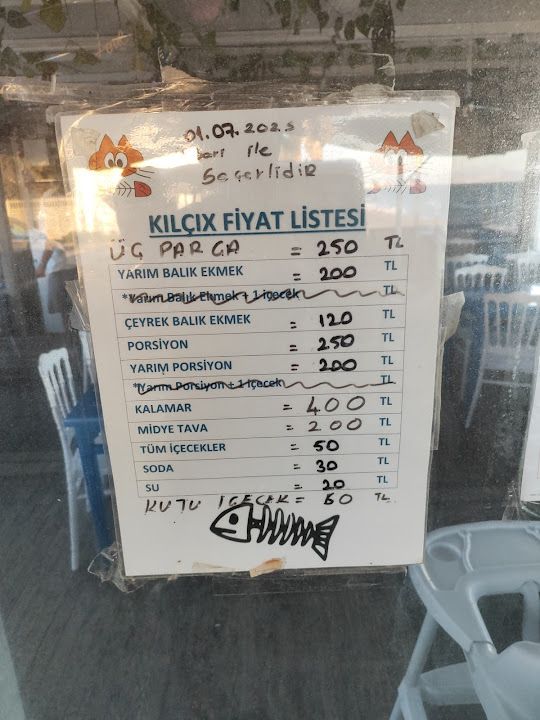 01.07.2025
ile
Geçerlidir
KILÇIX FİYAT LİSTESİ
ÜÇ PARÇA = 250 TL
YARIM BALIK EKMEK = 200 TL
*Yarım Balık Ekmek + 1 içecek TL
ÇEYREK BALIK EKMEK = 120 TL
PORSİYON = 250 TL
YARIM PORSİYON = 200 TL
*Yarım Porsiyon + 1 İçecek TL
KALAMAR = 400 TL
MİDYE TAVA = 200 TL
TÜM İÇECEKLER = 50 TL
SODA = 30 TL
SU = 20 TL
KUTU İÇECEK = 60 TL